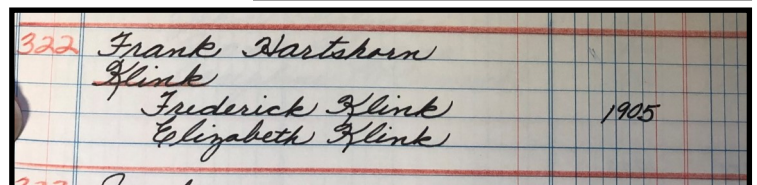 322 Frank Hartshorn
Klink
Frederick Klink 1905
Elizabeth Klink